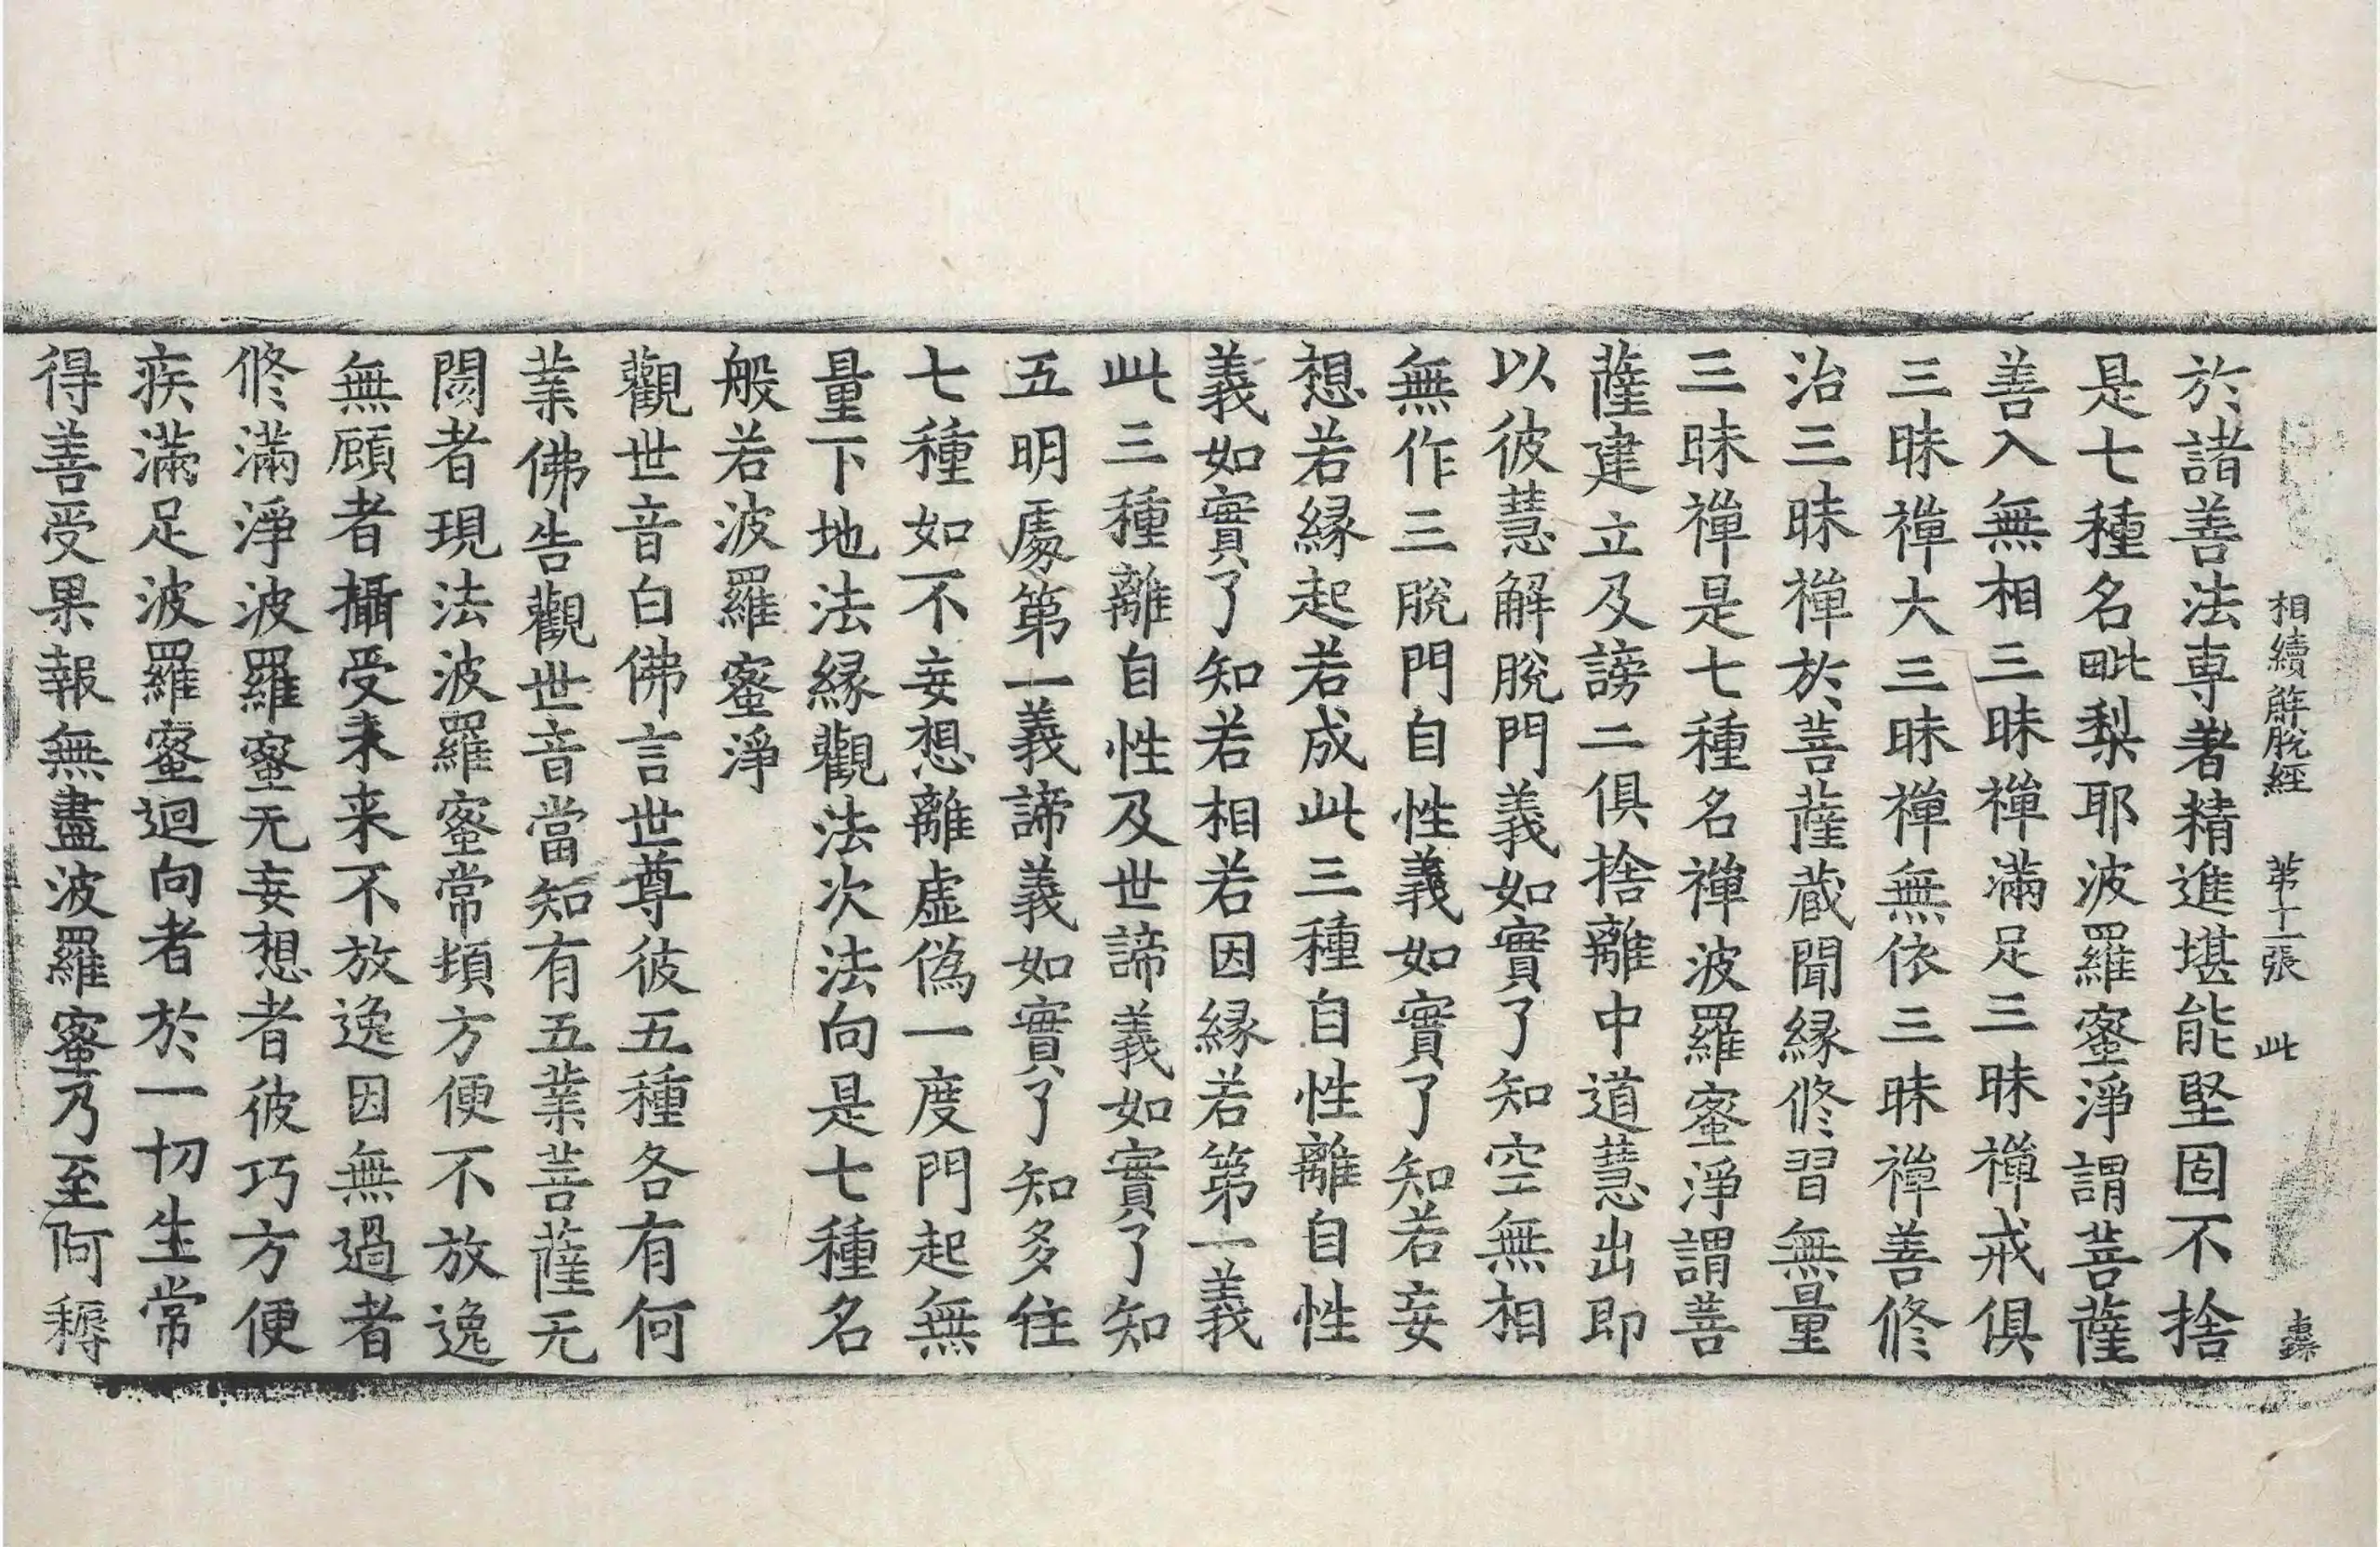 相續解脫經 第十一張 此
於諸善法専著精進堪能堅固不捨
是七種名毗梨耶波羅蜜淨謂菩薩
善入無相三昧禪滿足三昧禪戒俱
三昧禪大三昧禪無依三昧禪善修
治三昧禪於菩薩蔵聞緣修習無量
三昧禪是七種名禪波羅蜜淨謂菩
薩建立及謗二俱捨離中道慧出即
以彼慧解脫門義如實了知空無相
無作三脫門自性義如實了知若妄
想若緣起若成此三種自性離自性
義如實了知若相若因緣若第一義
此三種離自性及世諦義如實了知
五明處第一義諦義如實了知多住
七種如不妄想離虛偽一度門起無
量下地法緣觀法次法向是七種名
般若波羅蜜淨
觀世音白佛言世尊彼五種各有何
業佛告觀世音當知有五業菩薩无
閡者現法波羅蜜常頃方便不放逸
無顧者攝受未来不放逸因無過者
修滿淨波羅蜜无妄想者彼巧方便
疾滿足波羅蜜迴向者於一切生常
得善受果報無盡波羅蜜乃至阿耨